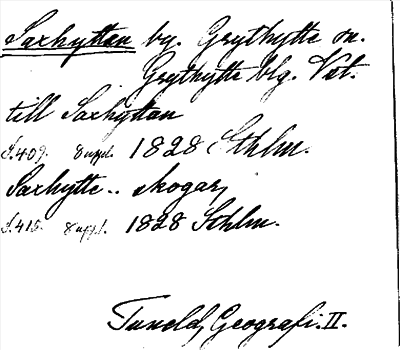 Saxhyttan by. Grythytte sn.
Grythytte blg. Vst.
till Saxhyttan
S.409. Suppl. 1828 Sthlm.
Saxhytte-- skogar,
S.415. Suppl. 1828 Sthlm.
Tuneld, Geografi. II.